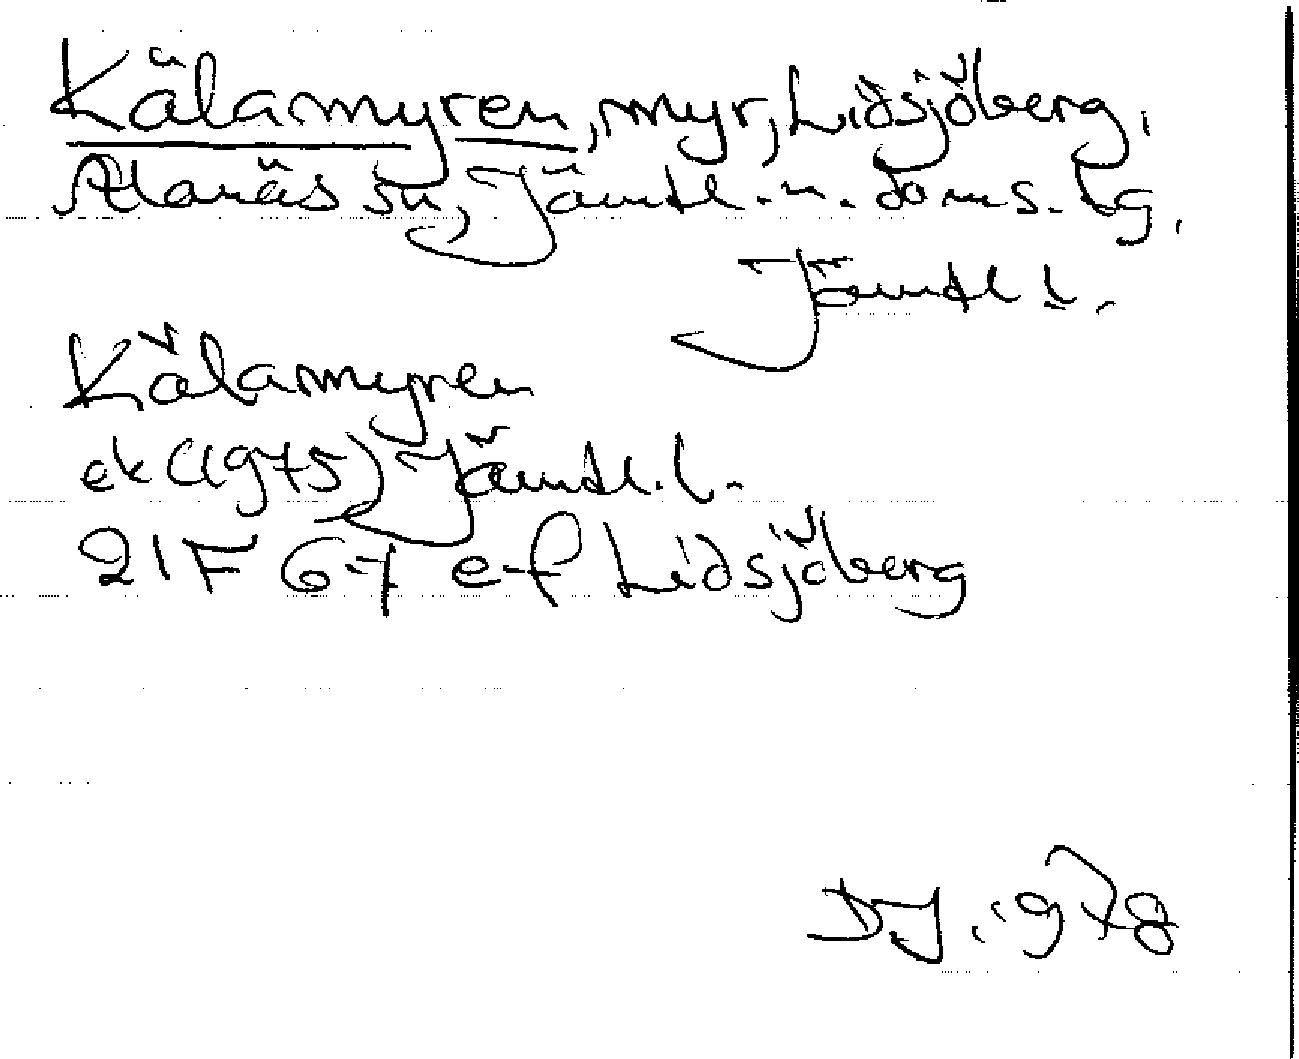 Kälamyren, myr, Lidsjöberg,
Alanäs sn, Jämtl. n. doms. tg,
Jämtl l.
Kälamyren
ek (1975) Jämtl. l.
21F 6-7 e-f Lidsjöberg
DJ. 1978